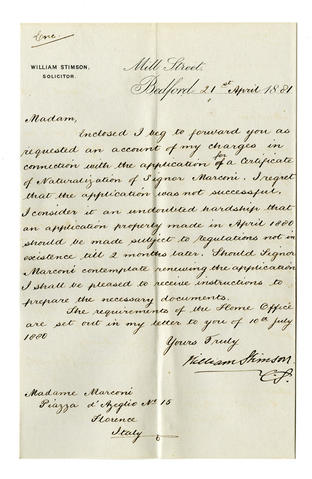 Enc.
WILLIAM STIMSON,
SOLICITOR.
Mill Street,
Bedford 21st April 1881
Madam,
Enclosed I beg to forward you as
requested an account of my charges in
connection with the application for a Certificate
of Naturalization of Signor Marconi. I regret
that the application was not successful.
I consider it an undoubted hardship that
an application properly made in April 1880
should be made subject to regulations not in
existence till 2 months later. Should Signor
Marconi contemplate renewing the application
I shall be pleased to receive instructions to
prepare the necessary documents.
The requirements of the Home Office
are set out in my letter to you of 10th July
1880
Yours Truly
William Stimson
Madame Marconi
Piazza d'Azeglio No 15
Florence
Italy